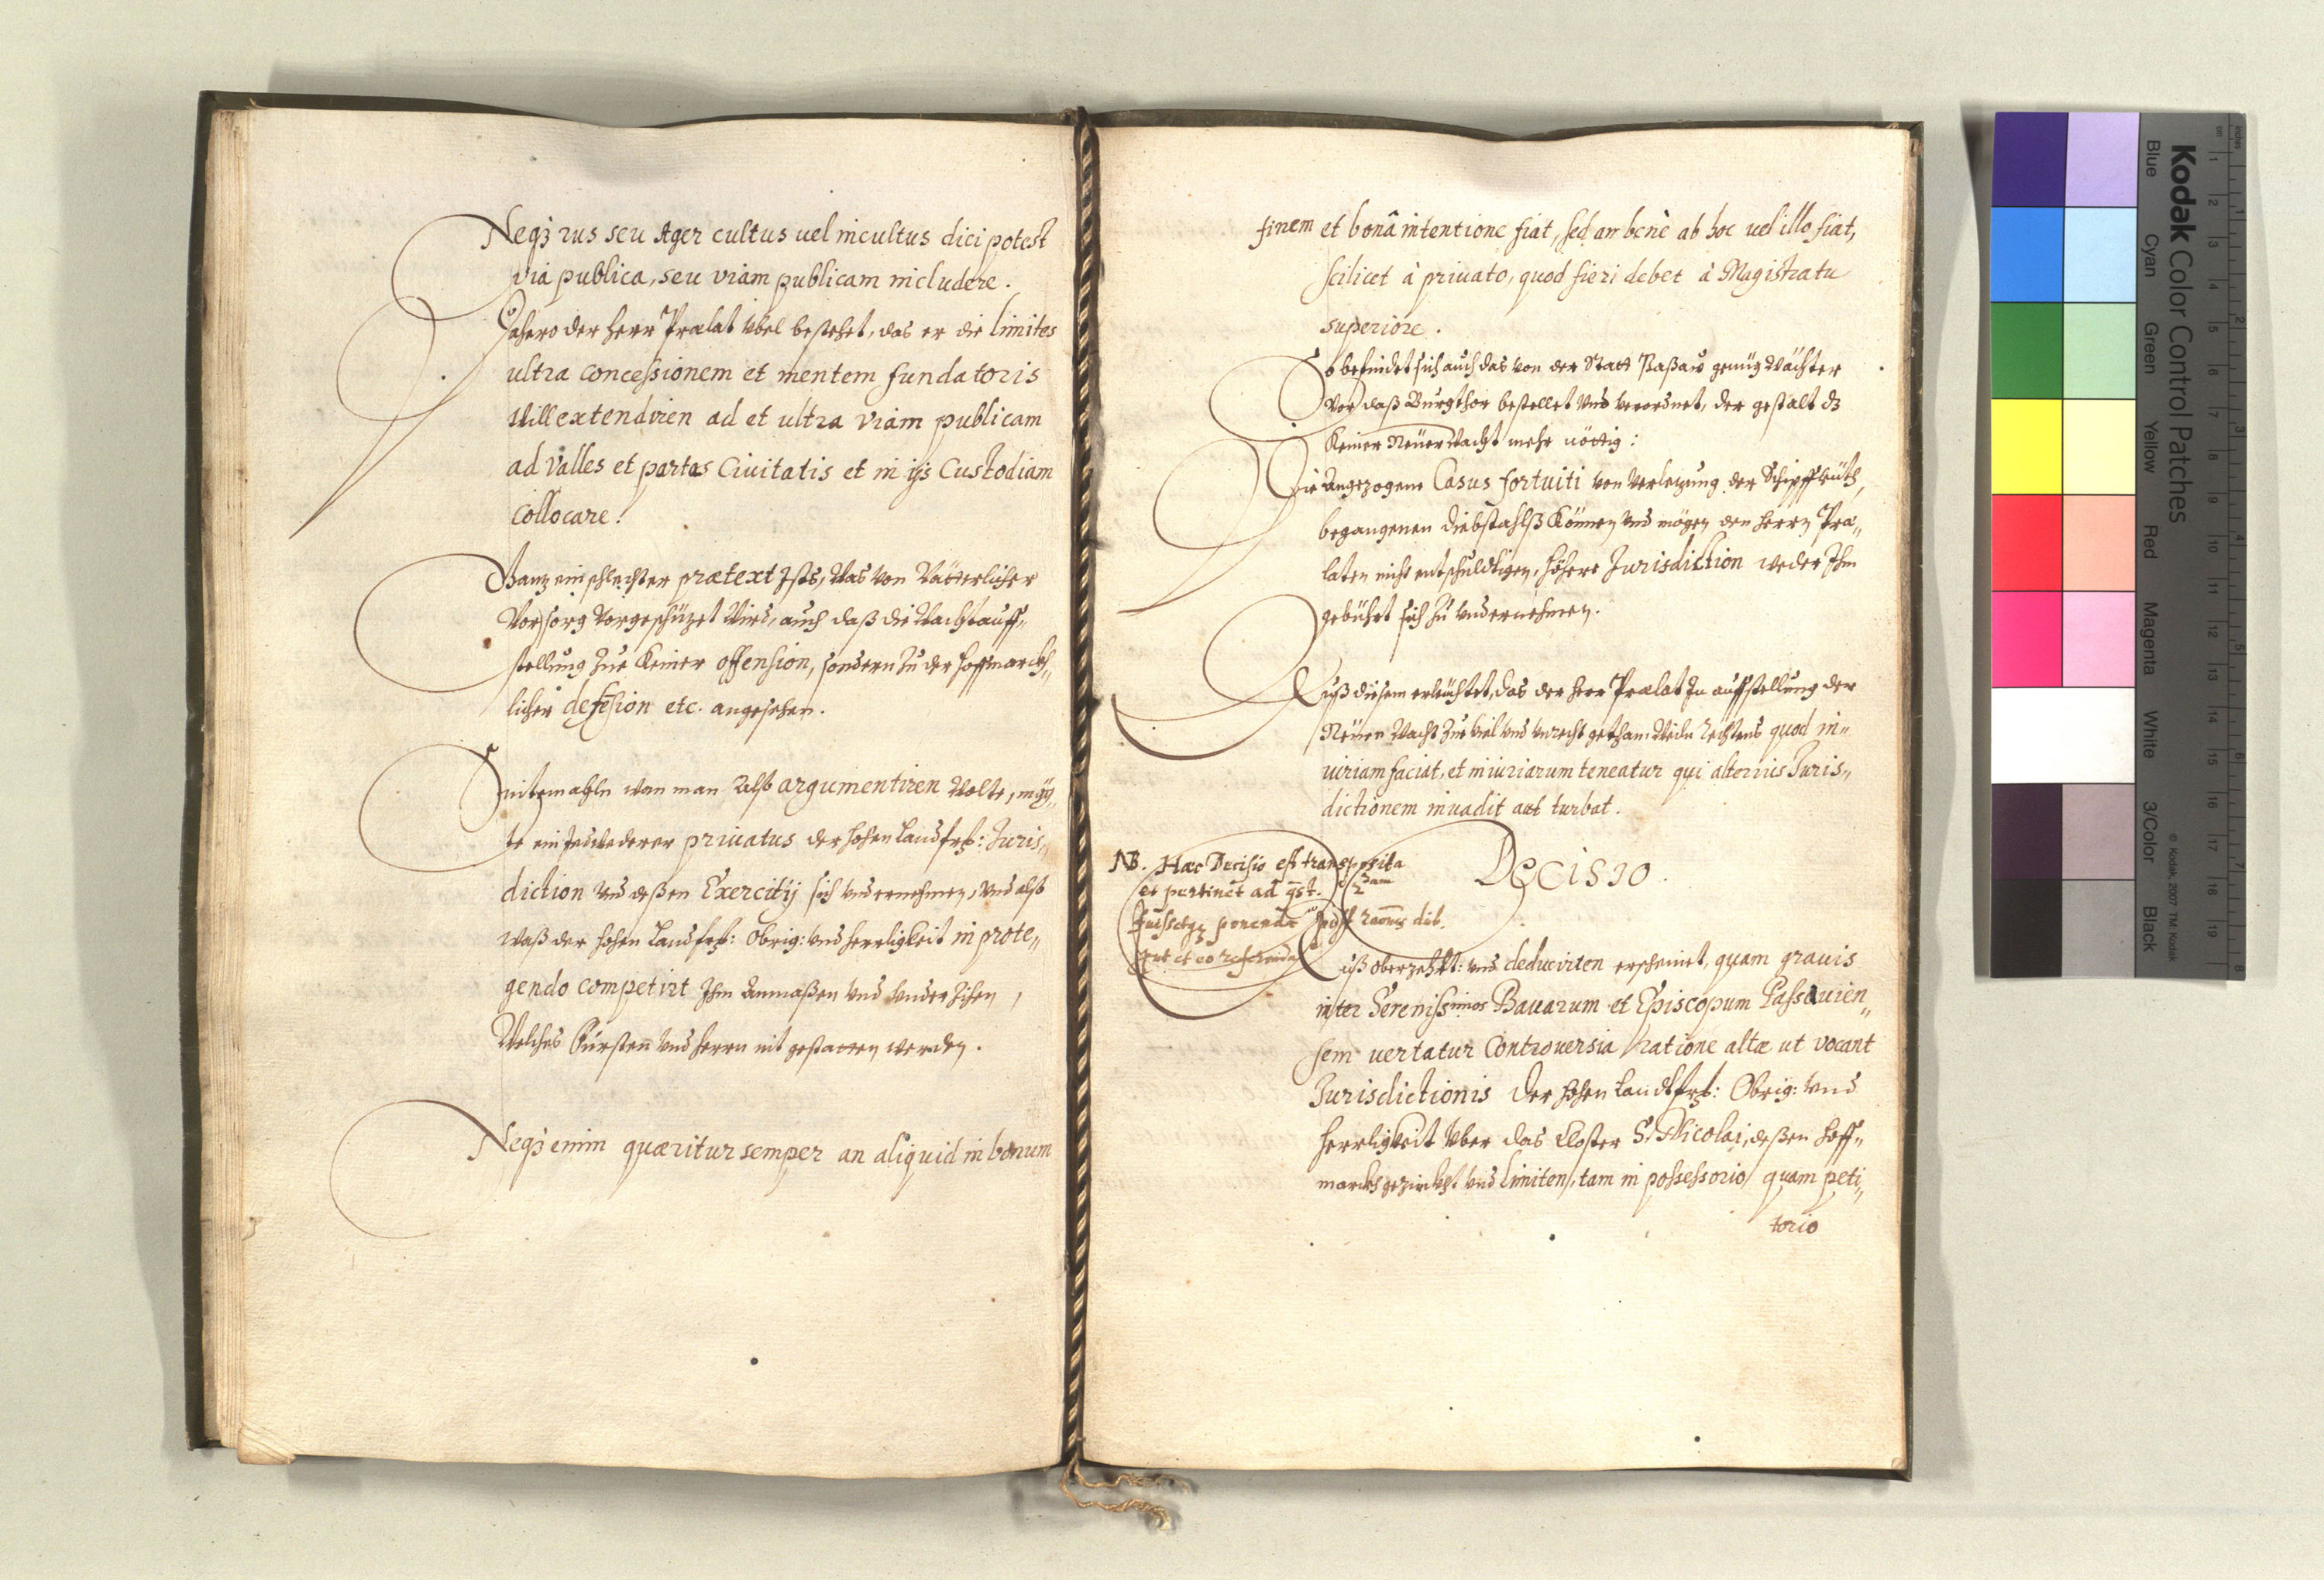 Neqз rus seu Ager cultus uel incultus dici potest
via publica, seu viam publicam includere.
Dahero der Herr Prælat Vbel bestehet, das er die limites
ultra concessionem et mentem fundatoris
Will extendirn ad et ultra viam publicam
ad valles et partes Ciuitatis et in ijs Custodiam
collocare!
Ganz ein schlechter prætext Ists, Was von Vätterlicher
Vorsorg Vorgeschüzet Wird, auch daß die Wachtauff„
stellung Zue Keiner offension, sondern Zu der hoffmarckh„
licher defēsion etc. angesehen.
Sintemahln wan man Alß argumentiren Wolte, mög„
te ein Jedwederer priuatus der hohen Landfrstl: Juris„
diction und deßen Exercitij sich vndernehmen, vnd alß
waß der hohen Landfrstl: Obrig: und herrligkeit in prote„
gendo competirt Ihm Anmaßen vnd vnderzihen,
Welches Fürsten vnd herrn nit gestatten werden.
Neqз enim quæritur semper an aliquid in bonum
finem et bonâ intentione fiat, sed an benè ab hoc uel illo fiat,
scilicet à priuato, quod fieri debet à Magistratu
superiore.
So befindet sich auch das von der Statt Paßaw genüg Wächter
Vor daß Burgthor bestellet vnd verordnet, der gestalt dz
Keiner Neüer Wacht mehr nöttig:
Die Angezogene Casus fortuiti von Verlezung der Schipffleüth,
begangenen diebstahlß Können vnd mögen den herrn Præ„
laten nicht entschuldtigen, höhere Jurisdiction weder Ihm
gebührt sich Zu vndernehmen.
Auß diesem erleüchtet, das der herr Prælat In auffstellung der
Neüen Wacht Zue viel vnd vnrecht gethan Weiln rechtens quod in„
iuriam faciat, et iniuriarum teneatur qui alterius Juris„
dictionem inuadit aut turbat.
NB. Hæc Decisio est transposita
et pertinet ad qst. 2am
Decisio.
post rāones dub.
Auß oberzehlt: und deducirten erscheinet, quam grauis
inter Serenissimos Bauarum et Episcopum Passauien„
sem uertatur Controuersia ratione altæ ut vocant
Jurisdictionis Der hohen Landtfrstl: Obrig: vnd
herrligkeit Vber das Closter S. Nicolai, deßen hoff„
marckhgezirckht vnd limiten, tam in possessorio quam peti„
torio